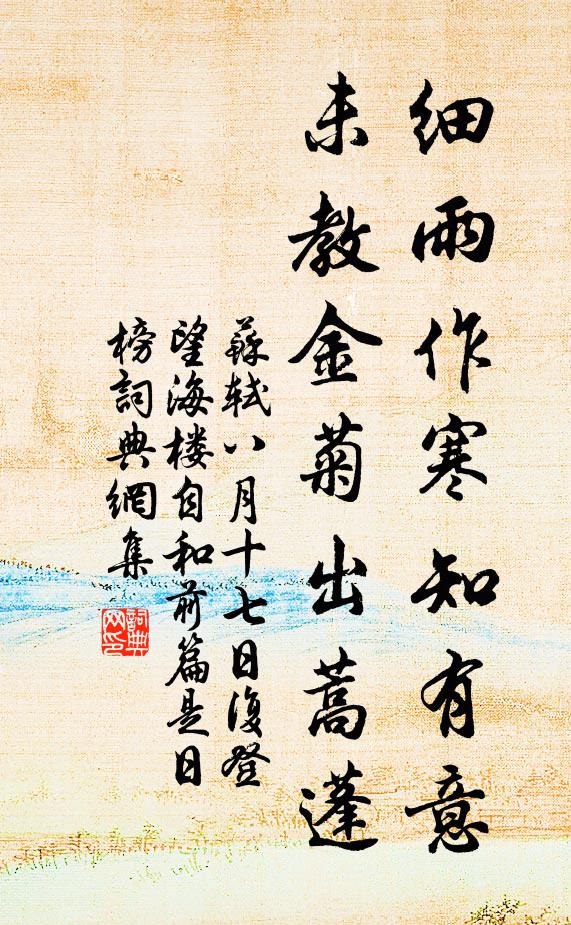 細雨作寒知有意
未教金菊出蒿蓬
蘇軾八月十七日復登
望海楼自和前篇是日
榜詞典網集
詞典
网印